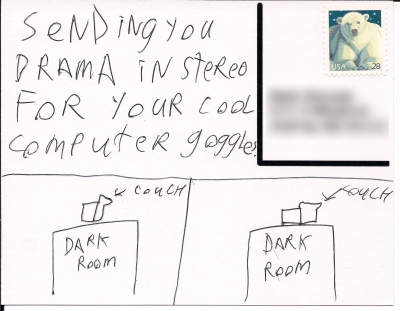 SENDING YOU
DRAMA IN STEREO
FOR YOUR COOL
COMPUTER GOGGLES!
USA 28
COUCH
DARK
ROOM
COUCH
DARK
ROOM